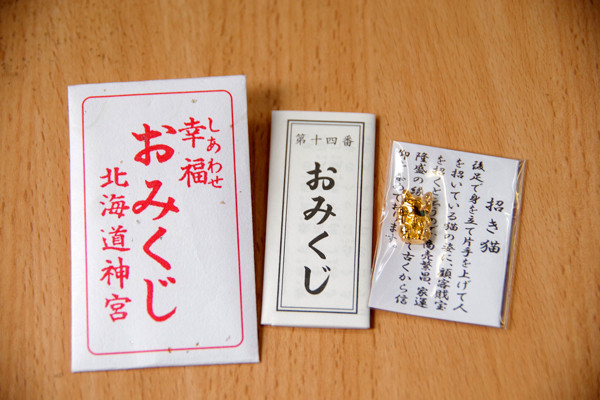 しあわせ
幸福
おみくじ
北海道神宮
第十四番
おみくじ
招き猫
後足で身を立て片手を上げて人
を招いている猫の姿、顧客財宝
を招く
売繁昌、家運
隆盛の
古くから信
仰